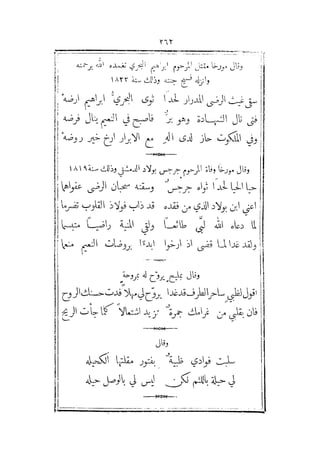 ٣٦٢
وقال مورخا مقتل المرحوم ابراهيم البحري تغمده الله برحمته
وانزله فسيح جنته وذلك سنة ١٨٢٢
سقى غيث الرضى المدرار لحدًا ثوى البحريُّ ابراهيم ارضه
فتى نال الشهادة وهو برٌّ فاصبح في النعيم ينال فرضه
وفي الملكوت حاز لدى الهٍ مع الابرار ارخ خير روضه
وقال مورخا وفاة المرحوم جرجس بولاد الدمشقي وذلك سنة ١٨١٩
حيا الحيا لحدًا ثواه جرجسٌ وسقته سحبان الرضى عفواهما
اعني ابن بولاد الذي من فقده قد ذاب فولاذ القلوب تضرما
لما دعاه الله لبَّى طائعًا ولقي المنية راضيًا متبسما
ولقد غدا لما قضى اذ ارخوا ابدًا بروضات النعيم منعما
وقال بمليح يروّح له بمروحة
اقول لظبيٍ ساحر الطرف قد غدا يروّح لي مهلًا فدت حسنك الروح
فان بقلبي من غرامك جمرةٌ تزيد اشتعالاً كلما جأت الريح
وقال
سلبت فوادي ظبيةٌ بفتور مقلتها الكحيله
لي حيلة باللثم لكن ليس لي بالوصل حيله